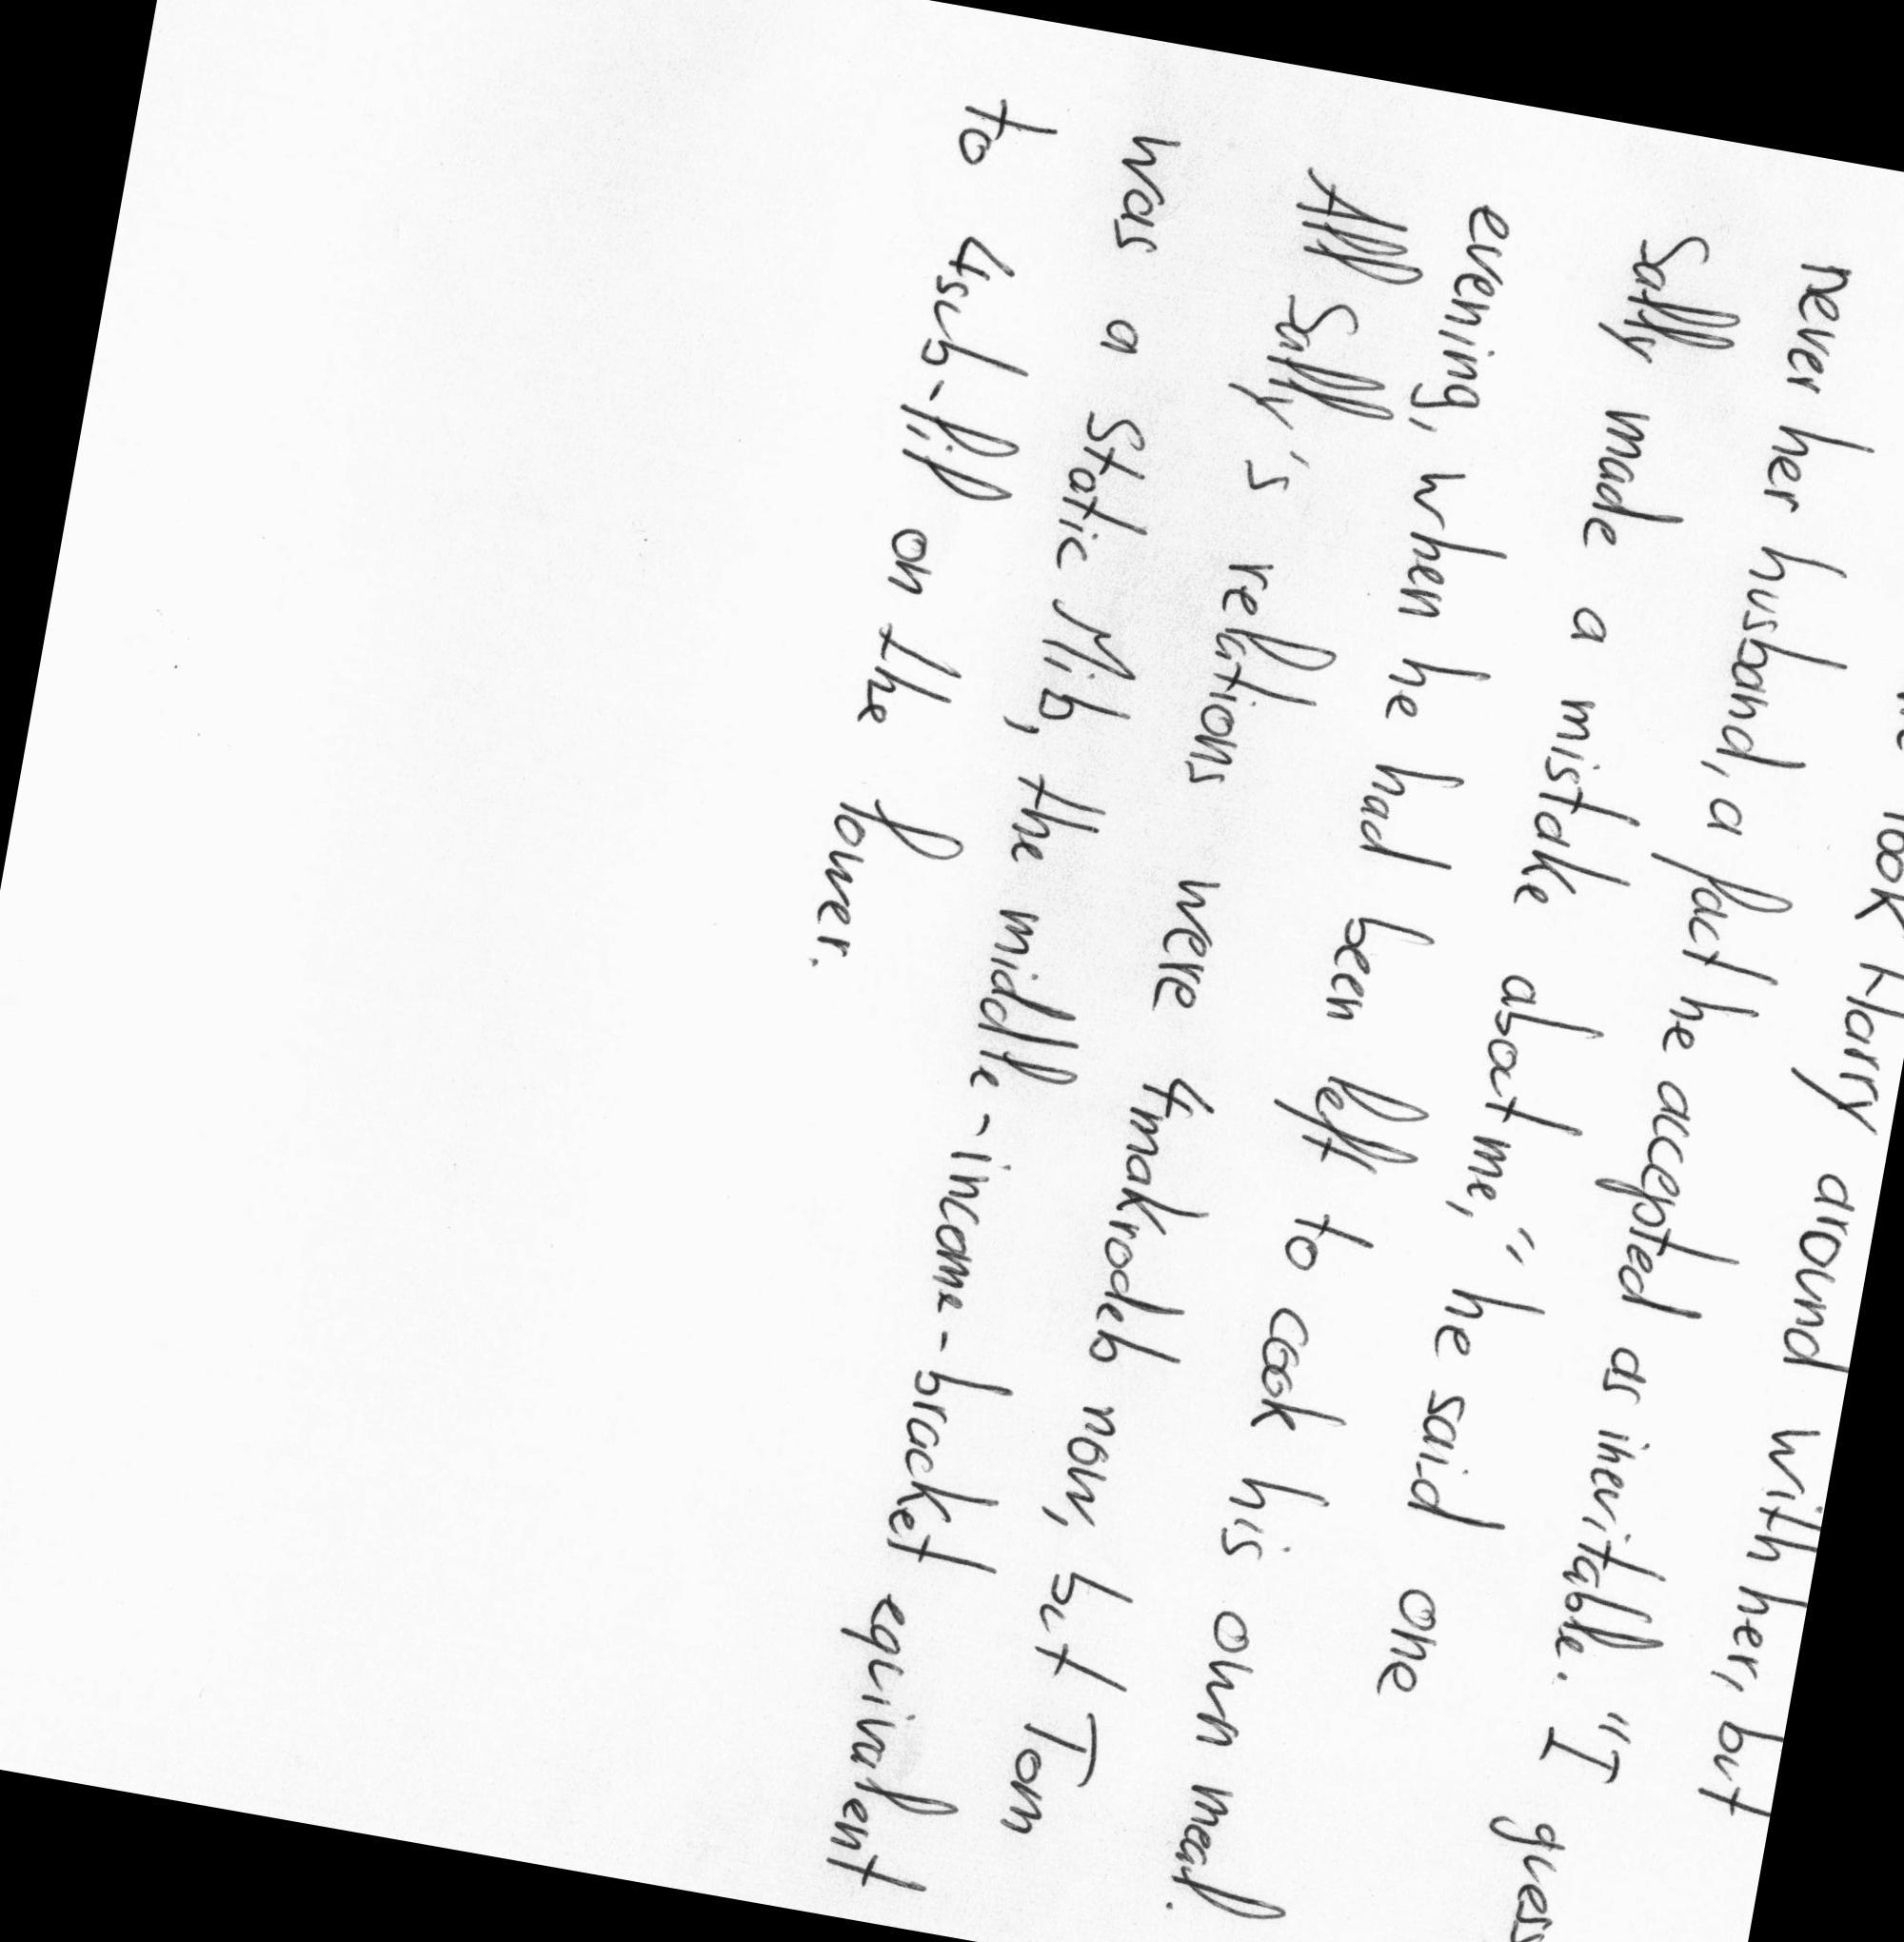 took Harry around with her, but
never her husband, a fact he accepted as inevitable. "I guess
Sally made a mistake about me," he said one
evening, when he had been left to cook his own meal.
All Sally's relations were 4makrodeb now, but Tom
was a Static Mib, the middle-income-bracket equivalent
to 4sub-lil on the lower.